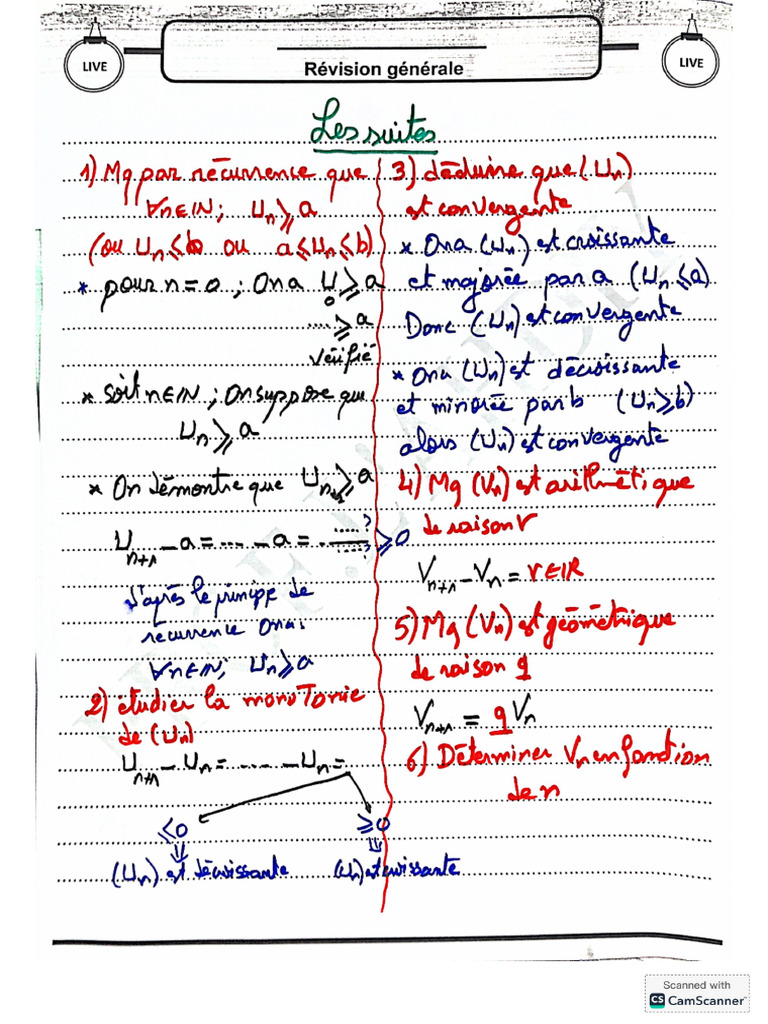 LIVE
Révision générale
LIVE
Les suites
1) Mq par récurrence que
∀n∈IN; Un⩾a
(ou Un⩽b ou a⩽Un⩽b)
* pour n=0; On a U0⩾a
....⩾a
vérifié
* soit n∈IN; On suppose que
Un⩾a
* On démontre que Un+1⩾a
Un+1 - a = --- - a = .....?/.....? ⩾0
d'après le principe de
recurrence On a:
∀n∈IN; Un⩾a
2) étudier la monotonie
de (Un)
Un+1 - Un = ---- - Un =
⩽0 ⩾0
⇓ ⇓
(Un) est décroissante (Un) est croissante
3) déduire que (Un)
est convergente
* On a (Un) est croissante
et majorée par a (Un⩽a)
Donc (Un) est convergente
* On a (Un) est décroissante
et minorée par b (Un⩾b)
alors (Un) est convergente
4) Mq (Vn) est arithmétique
de raison r
Vn+1 - Vn = r∈IR
5) Mq (Vn) est géométrique
de raison q
Vn+1 = q Vn
6) Déterminer Vn en fonction
de n
Scanned with
CS CamScanner